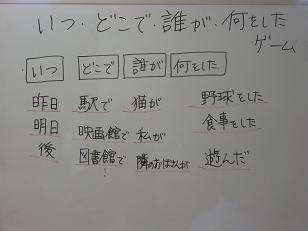 いつ・どこで・誰が・何をした
ゲーム
いつ どこで 誰が 何をした
昨日 駅で 猫が 野球をした
明日 映画館で 私が 食事をした
後 図書館で 隣のおばさんが 遊んだ
⋮